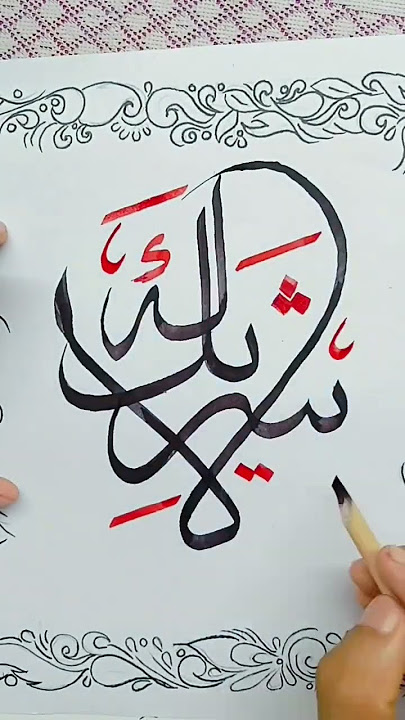 لا شريك له